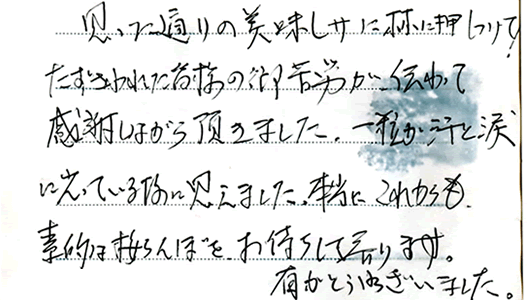 思った通りの美味しサに妹に押しつけて!
たずさわれた皆様の御苦労が伝わって
感謝しながら頂きました。一粒が汗と涙
に光っている様に思えました。本当にこれからも
素的な桜らんぼを、お待ちして居ります。
有がとうございました。